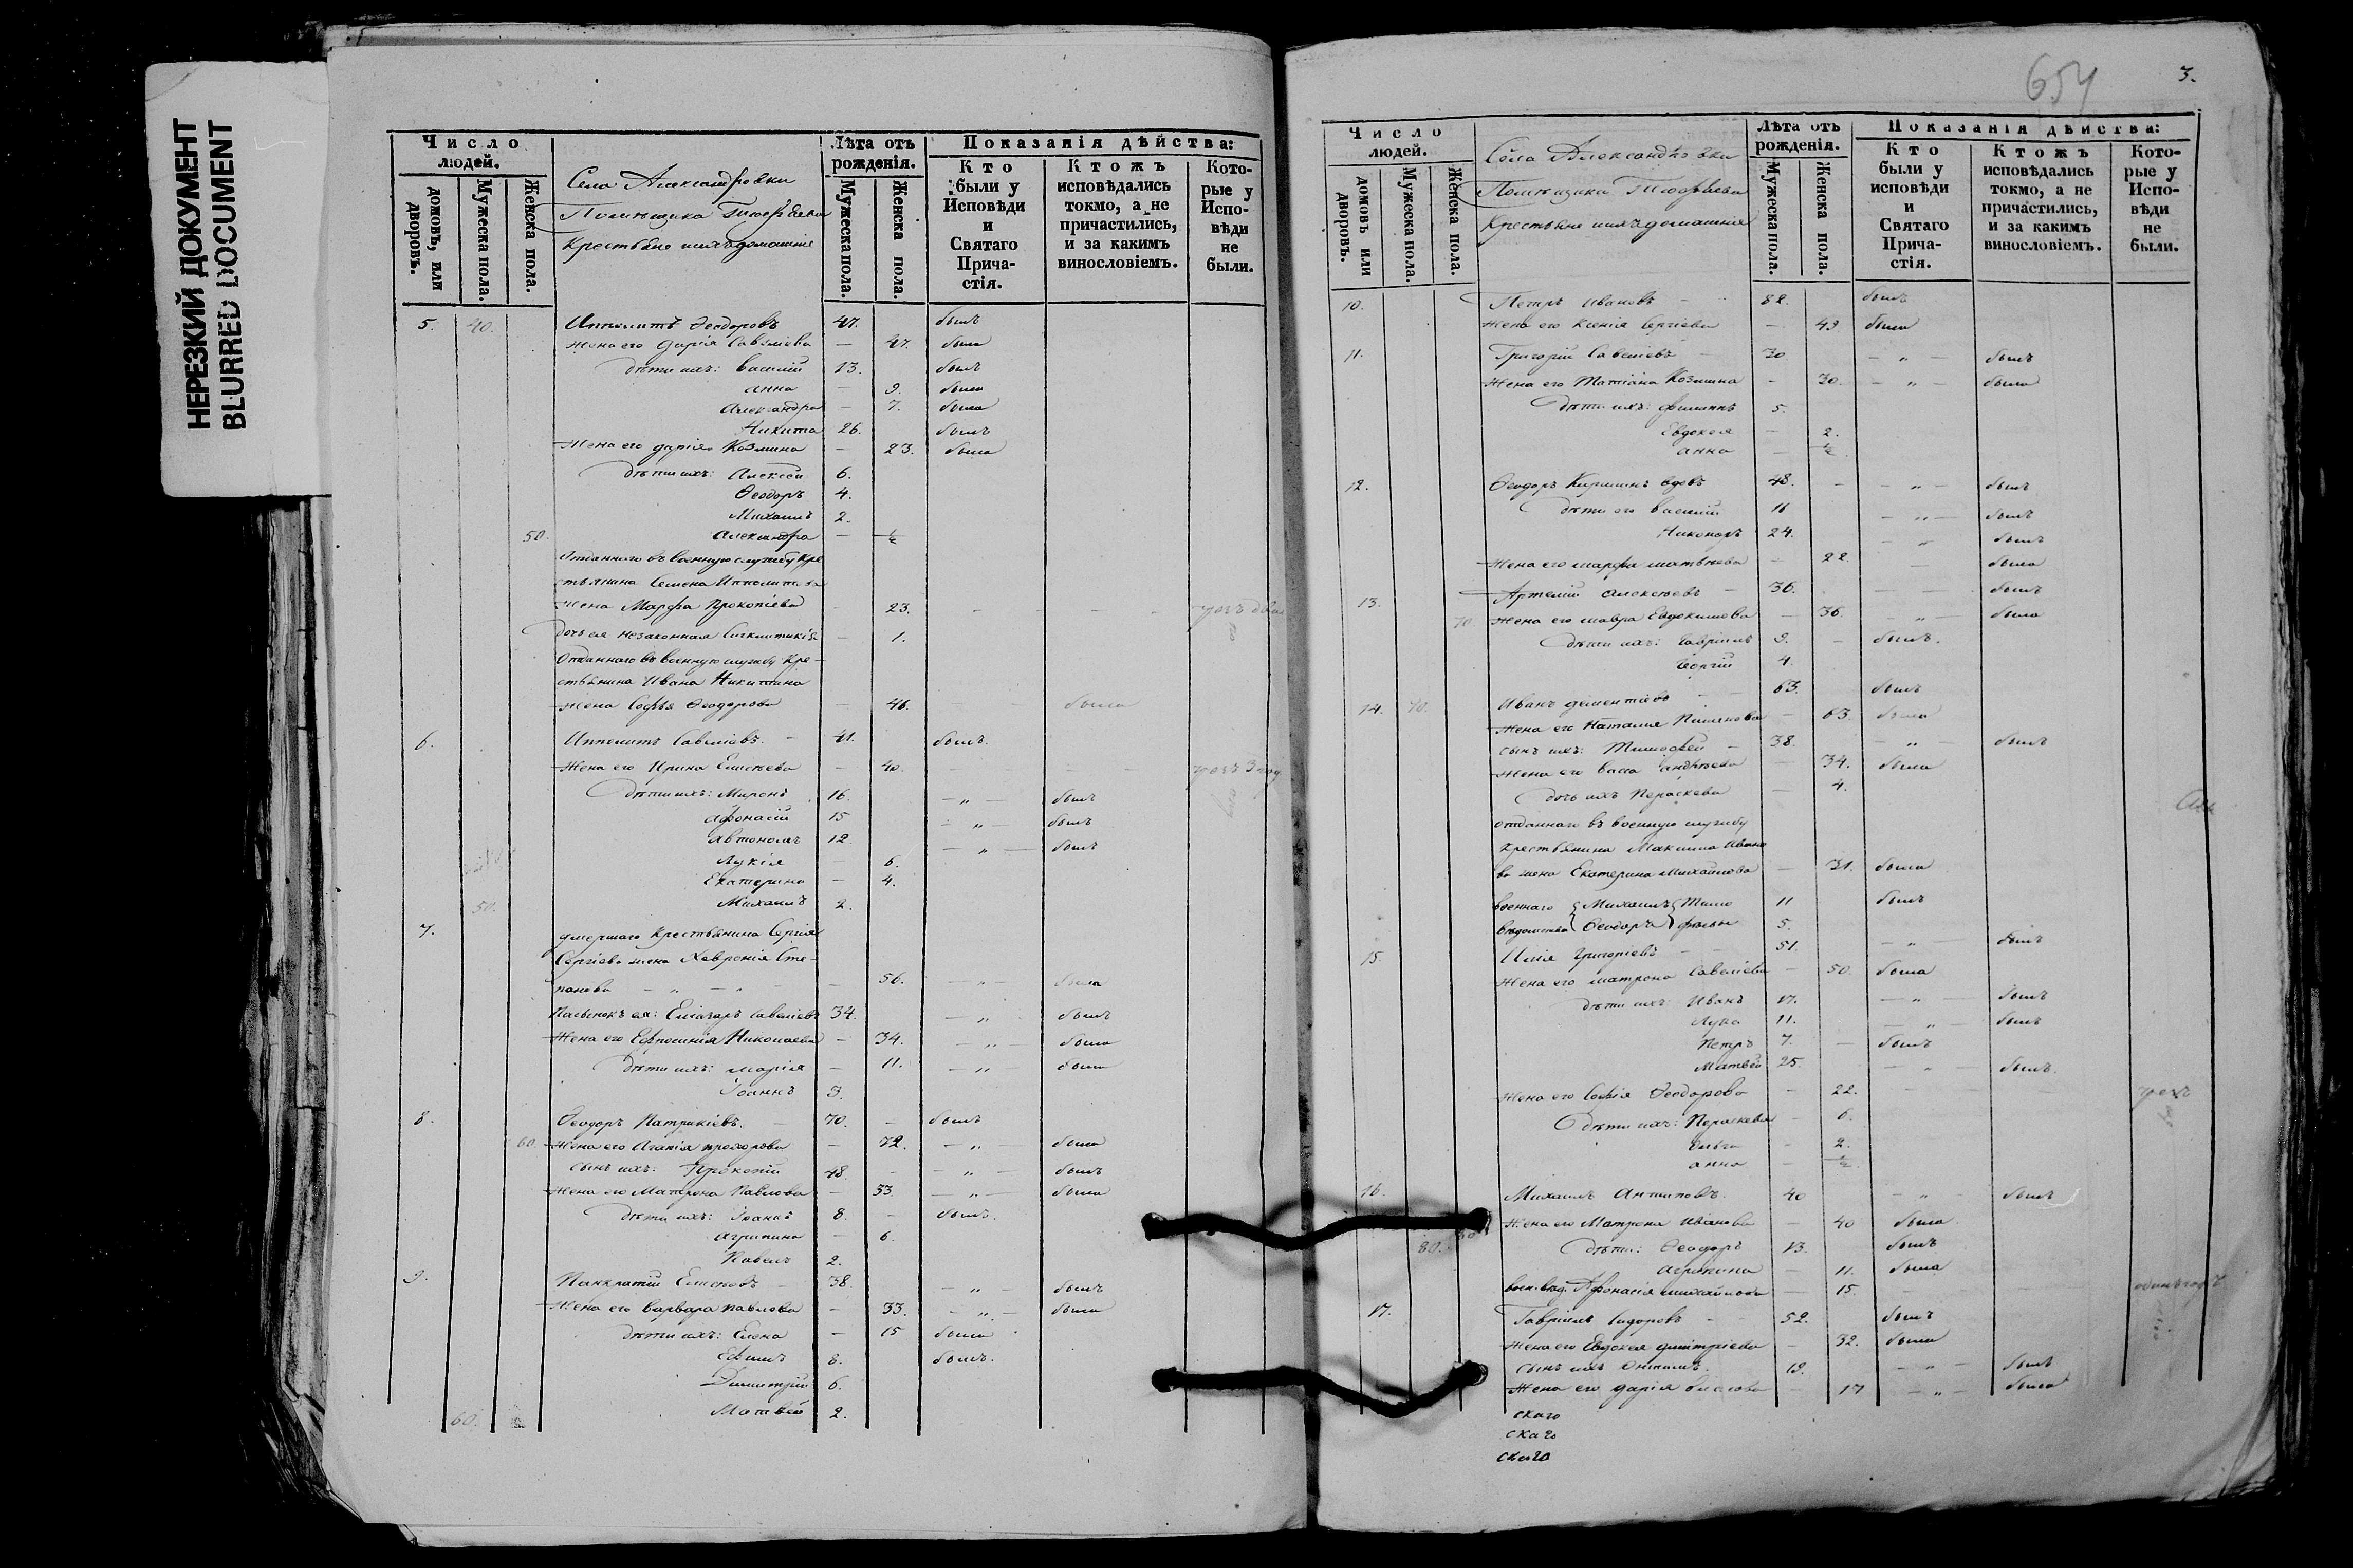 НЕРЕЗКИЙ ДОКУМЕНТ
BLURRED DOCUMENT
Число людей.
домовъ, или дворовъ.
Мужеска пола.
Женска пола.
Села Александровки
Помѣщика
Крестьяне и ихъ домашніе
Лѣта отъ рожденія.
Мужеска пола.
Женска пола.
Показанія дѣйства:
Кто были у Исповѣди и Святаго Причастія.
Ктожъ исповѣдались токмо, а не причастились, и за какимъ винословіемъ.
Которые у Исповѣди не были.
5. 40. Ипполитъ Ѳеодоровъ 47. былъ
Жена его Дарія Савеліева — 47. была
дѣти ихъ: Василій 13. былъ
Анна — 9. была
Александра — 7. была
Никита 26. былъ
Жена его Дарія Козмина — 23. была
дѣти ихъ: Алексѣй 6.
Ѳеодоръ 4.
Михаилъ 2.
50. Александра — ½
Отданнаго въ военную службу кре
стьянина Семена Ипполитова
жена Марфа Прокопіева — 23. — — —
дочь ея незаконная Синклитикія — 1.
Отданнаго въ военную службу кре-
стьянина Ивана Никитина
жена Софья Ѳеодорова — 46. — — была
6. Ипполитъ Савеліевъ. — 41. былъ.
Жена его Ирина Елисѣева — 40. — —
дѣти ихъ: Миронъ 16. — „ — былъ
Афонасій 15 — „ — былъ
Автономъ 12 — „ — былъ
Лукія 6.
Екатерина — 4.
50. Михаилъ 2.
7. умершаго крестьянина Сергія
Сергіева жена Хавронія Сте-
панова — „ — „ — — 56. — „ — была
Пасынокъ ея: Елизаръ Савеліевъ 34. — „ былъ
Жена его Ефросинія Николаева — 34. — „ — была
дѣти ихъ: Марія — 11. — „ была
Іоаннъ 3.
8. Ѳеодоръ Патрикіевъ. — 70. — былъ
60. Жена его Агапія Прохорова — 72. — „ была
сынъ ихъ: Прокопій 48. — — „ — былъ
Жена его Матрона Павлова — 53. — „ — была
дѣти ихъ: Іоаннъ 8. — былъ.
Агрипина — 6.
Павелъ 2.
9. Панкратій Елисѣевъ — 38. — „ — былъ
Жена его Варвара Павлова — 33. — „ — была
дѣти ихъ: Елена — 15 была
Ефимъ 8. былъ.
Димитрій 6.
60. Матвей 2.
654
3.
Число людей.
домовъ или дворовъ.
Мужеска пола.
Женска пола.
Села Александровки
Помѣщика
Крестьяне и ихъ домашніе
Лѣта отъ рожденія.
Мужеска пола.
Женска пола.
Показанія дѣйства:
Кто были у исповѣди и Святаго Причастія.
Ктожъ исповѣдались токмо, а не причастились, и за какимъ винословіемъ.
Которые у Исповѣди не были.
10. Петръ Ивановъ — 82. былъ
Жена его Ксенія Сергіева — 49. была
11. Григорій Савеліевъ — 30 — „ — былъ
Жена его Татіана Козмина — 30. — „ — была
дѣти ихъ: Филиппъ 5.
Евдокея — 2.
Анна — ½
12. Ѳеодоръ вдовъ 48. — — „ — былъ
дѣти его Василій 11 — „ — былъ
Никоноръ 24. — „ былъ
Жена его Марфа Матвѣева — 22. — была
13. Артемій Алексѣевъ — 36. — — былъ
70. Жена его Мавра Евдокимова — 36. — „ — была
дѣти ихъ: Гавріилъ 9. — былъ.
Георгій 4.
14. 70. Иванъ Дементіевъ — 63. былъ
Жена его Наталия — 63. была
сынъ ихъ: Тимофей — 38. — „ — былъ
Жена его Васса Андреева — 34. была
дочь ихъ Параскева — 4.
отданнаго въ военную службу
крестьянина Максима Ивано
ва жена Екатерина Михайлова — 31. была
военнаго Михаилъ Тимо 11 былъ
вѣдомства Ѳеодоръ фѣевы 5.
15. Илія Григоріевъ — — 51. — „ — былъ
Жена его Матрона Савеліева — 50. была
дѣти ихъ: Иванъ 17. — „ — былъ
Лука 11. — „ былъ
Петръ 7. — былъ
Матвей 25. — „ — былъ.
Жена его Софія Ѳеодорова — 22. — —
дѣти ихъ: Параскева — 6.
Ольга — 2.
Анна — ½
16. Михаилъ Антиповъ. 40 — „ былъ
Жена его Матрона Иванова — 40 была
80. 80. дѣти: Ѳеодоръ 13. былъ
Агрипина — 11. была
воен. вѣд. Афонасія Михайлова — 15. — —
17. Гавріилъ Сидоровъ — 52. былъ
Жена его Евдокея Димитріева — 32. была
сынъ ихъ 19. — „ — былъ
Жена его Дарія — 17 — „ — была
скаго
скаго
скаго